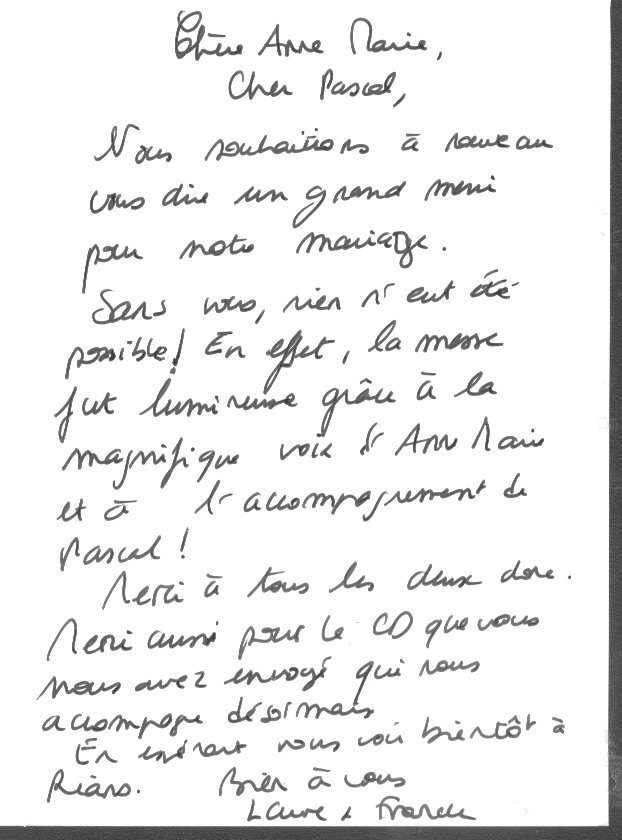 Chère Anne Marie,
Cher Pascal,
Nous souhaitions à nouveau
vous dire un grand merci
pour notre mariage.
Sans vous, rien n'eut été
possible! En effet, la messe
fut lumineuse grâce à la
magnifique voix d'Anne Marie
et à l'accompagnement de
Pascal!
Merci à tous les deux donc.
Merci aussi pour le CD que vous
nous avez envoyé qui nous
accompagne désormais
En espérant vous voir bientôt à
Riano. Bien à vous
Laure & Franck